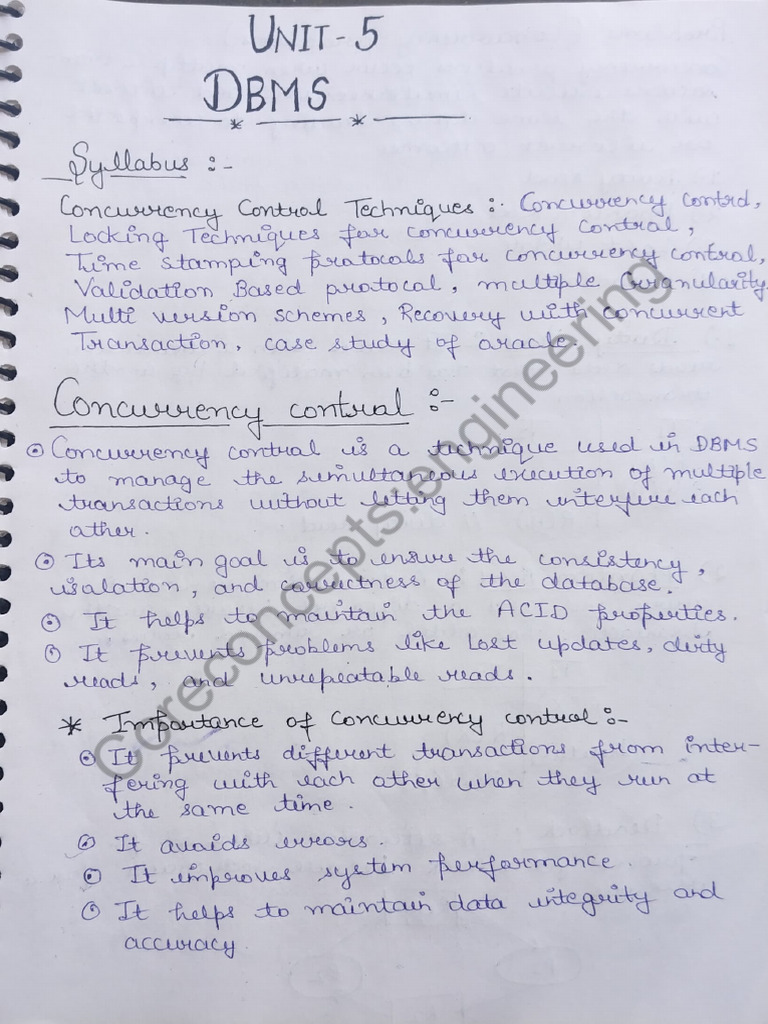 UNIT-5
DBMS
Syllabus :-
Concurrency Control Techniques :- Concurrency Control,
Locking Techniques for concurrency control,
Time stamping protocols for concurrency control,
Validation Based protocal, multiple Granularity,
Multi version schemes, Recovery with concurrent
Transaction, case study of oracle.
Concurrency control :-
Concurrency control is a technique used in DBMS
to manage the simultaneous execution of multiple
transactions without letting them interfere each
other.
Its main goal is to ensure the consistency,
isolation, and correctness of the database.
It helps to maintain the ACID properties.
It prevents problems like lost updates, dirty
reads, and unrepeatable reads.
* Importance of concurrency control :-
It prevents different transactions from inter-
fering with each other when they run at
the same time.
It avoids errors
It improves system performance
It helps to maintain data integrity and
accuracy
Coreconcepts.engineering